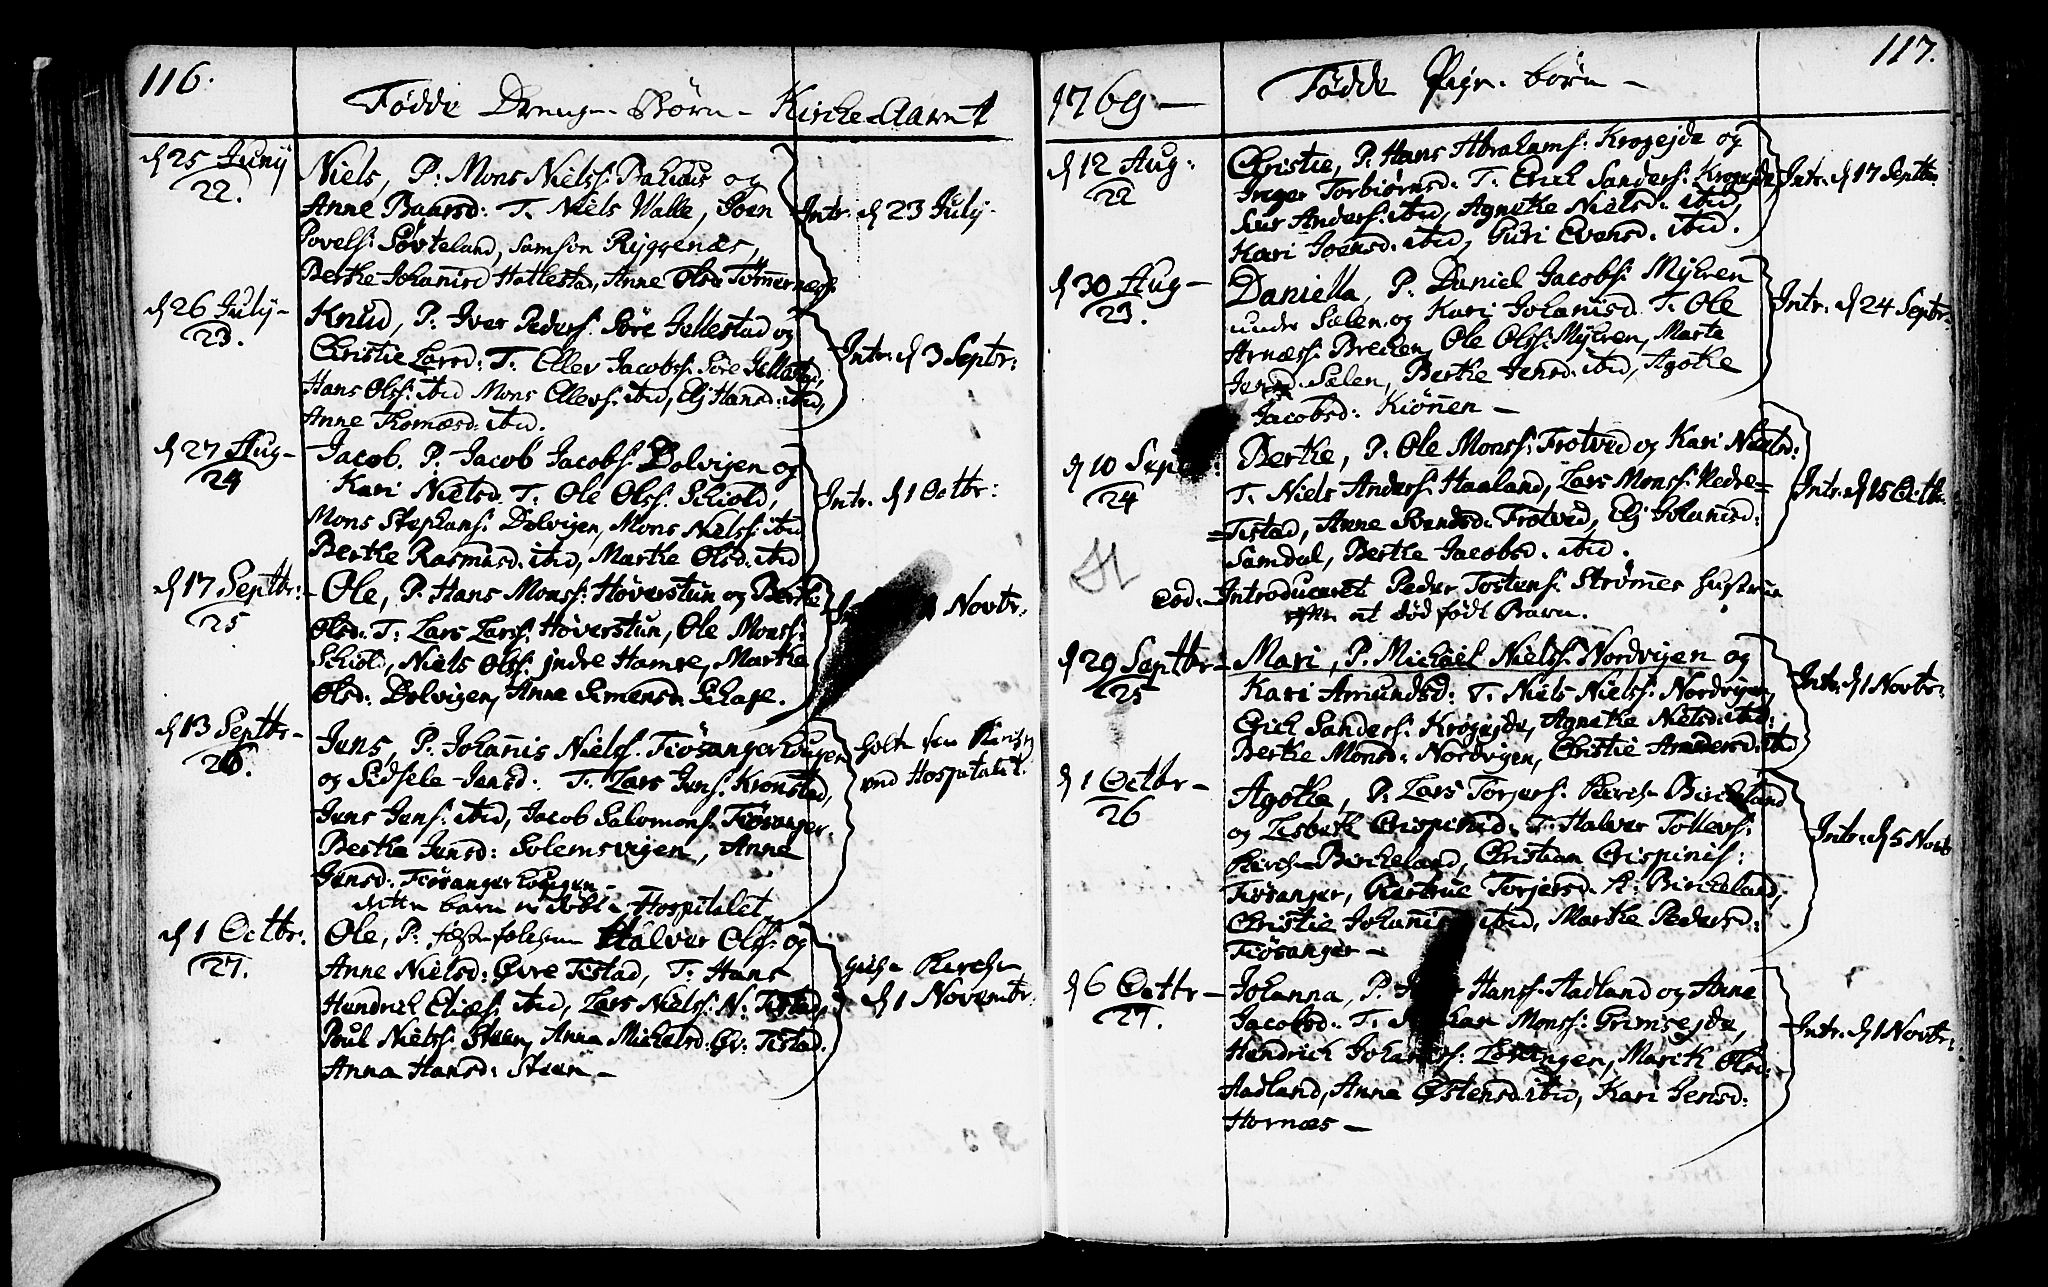 116.
Fødde Drenge-Børn - Kirke-Aaret
d 25 Junij
22.
Niels, P: Mons Nielss: og
Anne Baarsd: T. Niels Walle, Joen
Povelss: Søvteland, Samson Ryggenæs,
Berthe Johanisd Hatlestad, Anne Olsd
Intr. d 23 July-
d 26 July-
23.
Knud, P: Iver Peders: Søre Jellestad og
Christie Larsd: T. Ellev Jacobss: Søre Jellestad,
Hans Olss: ibid Mons Ellevs: ibid, Elj Hansd: ibid,
Anne Thomæsd: ibid.
Intr: d 3 Septbr:
d 27 Aug-
24
Jacob. P. Jacob Jacobs: Dolvigen og
Kari Nielsd. T. Ole Olss: Schiold,
Mons Stephans: Dolvigen, Mons Nielss: ibid
Berthe Rasmusd: ibid, Marthe Olsd: ibid
Intr. d 1 Octbr:
d 17 Septbr:
25
Ole, P: Hans Monss: Høverstun og Berthe
Olsd: T: Lars Larss: Høverstun, Ole Monss:
Schiold, Niels Olss: jndre Hamre, Marthe
Olsd: Dolvigen, Anne Simensd: Schage.
Novbr:
d 13 Septbr-
26.
Jens, P: Johannis Nielss: Fiøsangerhougen
og Sidsele Jensd: T. Lars Jens: Kronstad,
Jens Jens: ibid, Jacob Salomons: Fiøsanger.
Berthe Jensd: Solemsvigen, Anne
Jensd: Fiøsangerhougen-
dette barn er døbt i Hospitalet
holte sin
ved Hospitalet.
d 1 Octbr.
27.
Ole, P: Halver Olss: og
Anne Nielsd: Øvre Tistad, T: Hans
Hendrich Eliæs: ibid, Lars Niels: N: Tistad,
Poul Nielss: Steen, Anna Michelsd: Øv: Tistad.
Anna Hansd: Steen-
Kirche
d 1 Novembr.
117.
1769-
Fødde Pige-børn-
d 12 Aug:
22
Christie, P: Hans Abrahams: Krogejde og
Inger Torbiørnsd: T. Erich Sanders: Krogejde,
Siur Anders: ibid, Agnethe Nielsd: ibid,
Kari Joensd: ibid, Guri Evensd. ibid.
Intr. d 17 Septbr.
d 30 Aug-
23.
Daniella, P: Daniel Jacobs: Myhren
undr Sælen og Kari Johanisd. T. Ole
Arnæss: Brechen, Ole Olss: Myhren, Marte
Sælen, Berthe Jensd: ibid, Agothe
Jacobsd: Kiønnen-
Intr. d 24 Septbr:
d 10 Septbr:
24
Berthe, P: Ole Monss: Trotved og Kari Nielsd:
T. Niels Anders: Haaland, Lars Monss: Nedre=
=Tistad, Anne Svendsd: Trotved, Elj Johanisd:
Samdal, Berthe Jacobsd. ibid.
Intr. d 15 Octbr.
eod:-Introduceret Peder Tostens: Strømnes Hustrue
efter et død født Barn.
d 29 Septbr:
25
Mari, P. Michael Nielss: Nordvigen og
Kari Amundsd: T. Niels Nielss: Nordvigen,
Erich Sanders: Krogejde, Agnethe Nielsd: ibid:
Berthe Monsd: Nordvigen, Christie Andersd: ibid
Intr: d 1 Novbr:
d 1 Octbr-
26
Agothe, P: Lars Torjers: Kirche Bircheland
og Lisbeth Crispinsd: T. Halver Tollevs:
Kirche Bircheland, Christian Crispinis:
Fiøsanger, Torjersd. K: Bircheland,
Christie Johanisd ibid, Marthe Pedersd:
Fiøsanger-
Intr: d 5 Novb
d 6 Octbr-
27.
Johanna, P. Hanss: Aadland og Anne
Jacobsd: T. Monss: Grimsejde,
Hendrich Løvengen, Marith Olsd:
Aadland, Anne Østensd: ibid, Kari Jensd:
Hornæs-
Intr. d 1 Novbr: